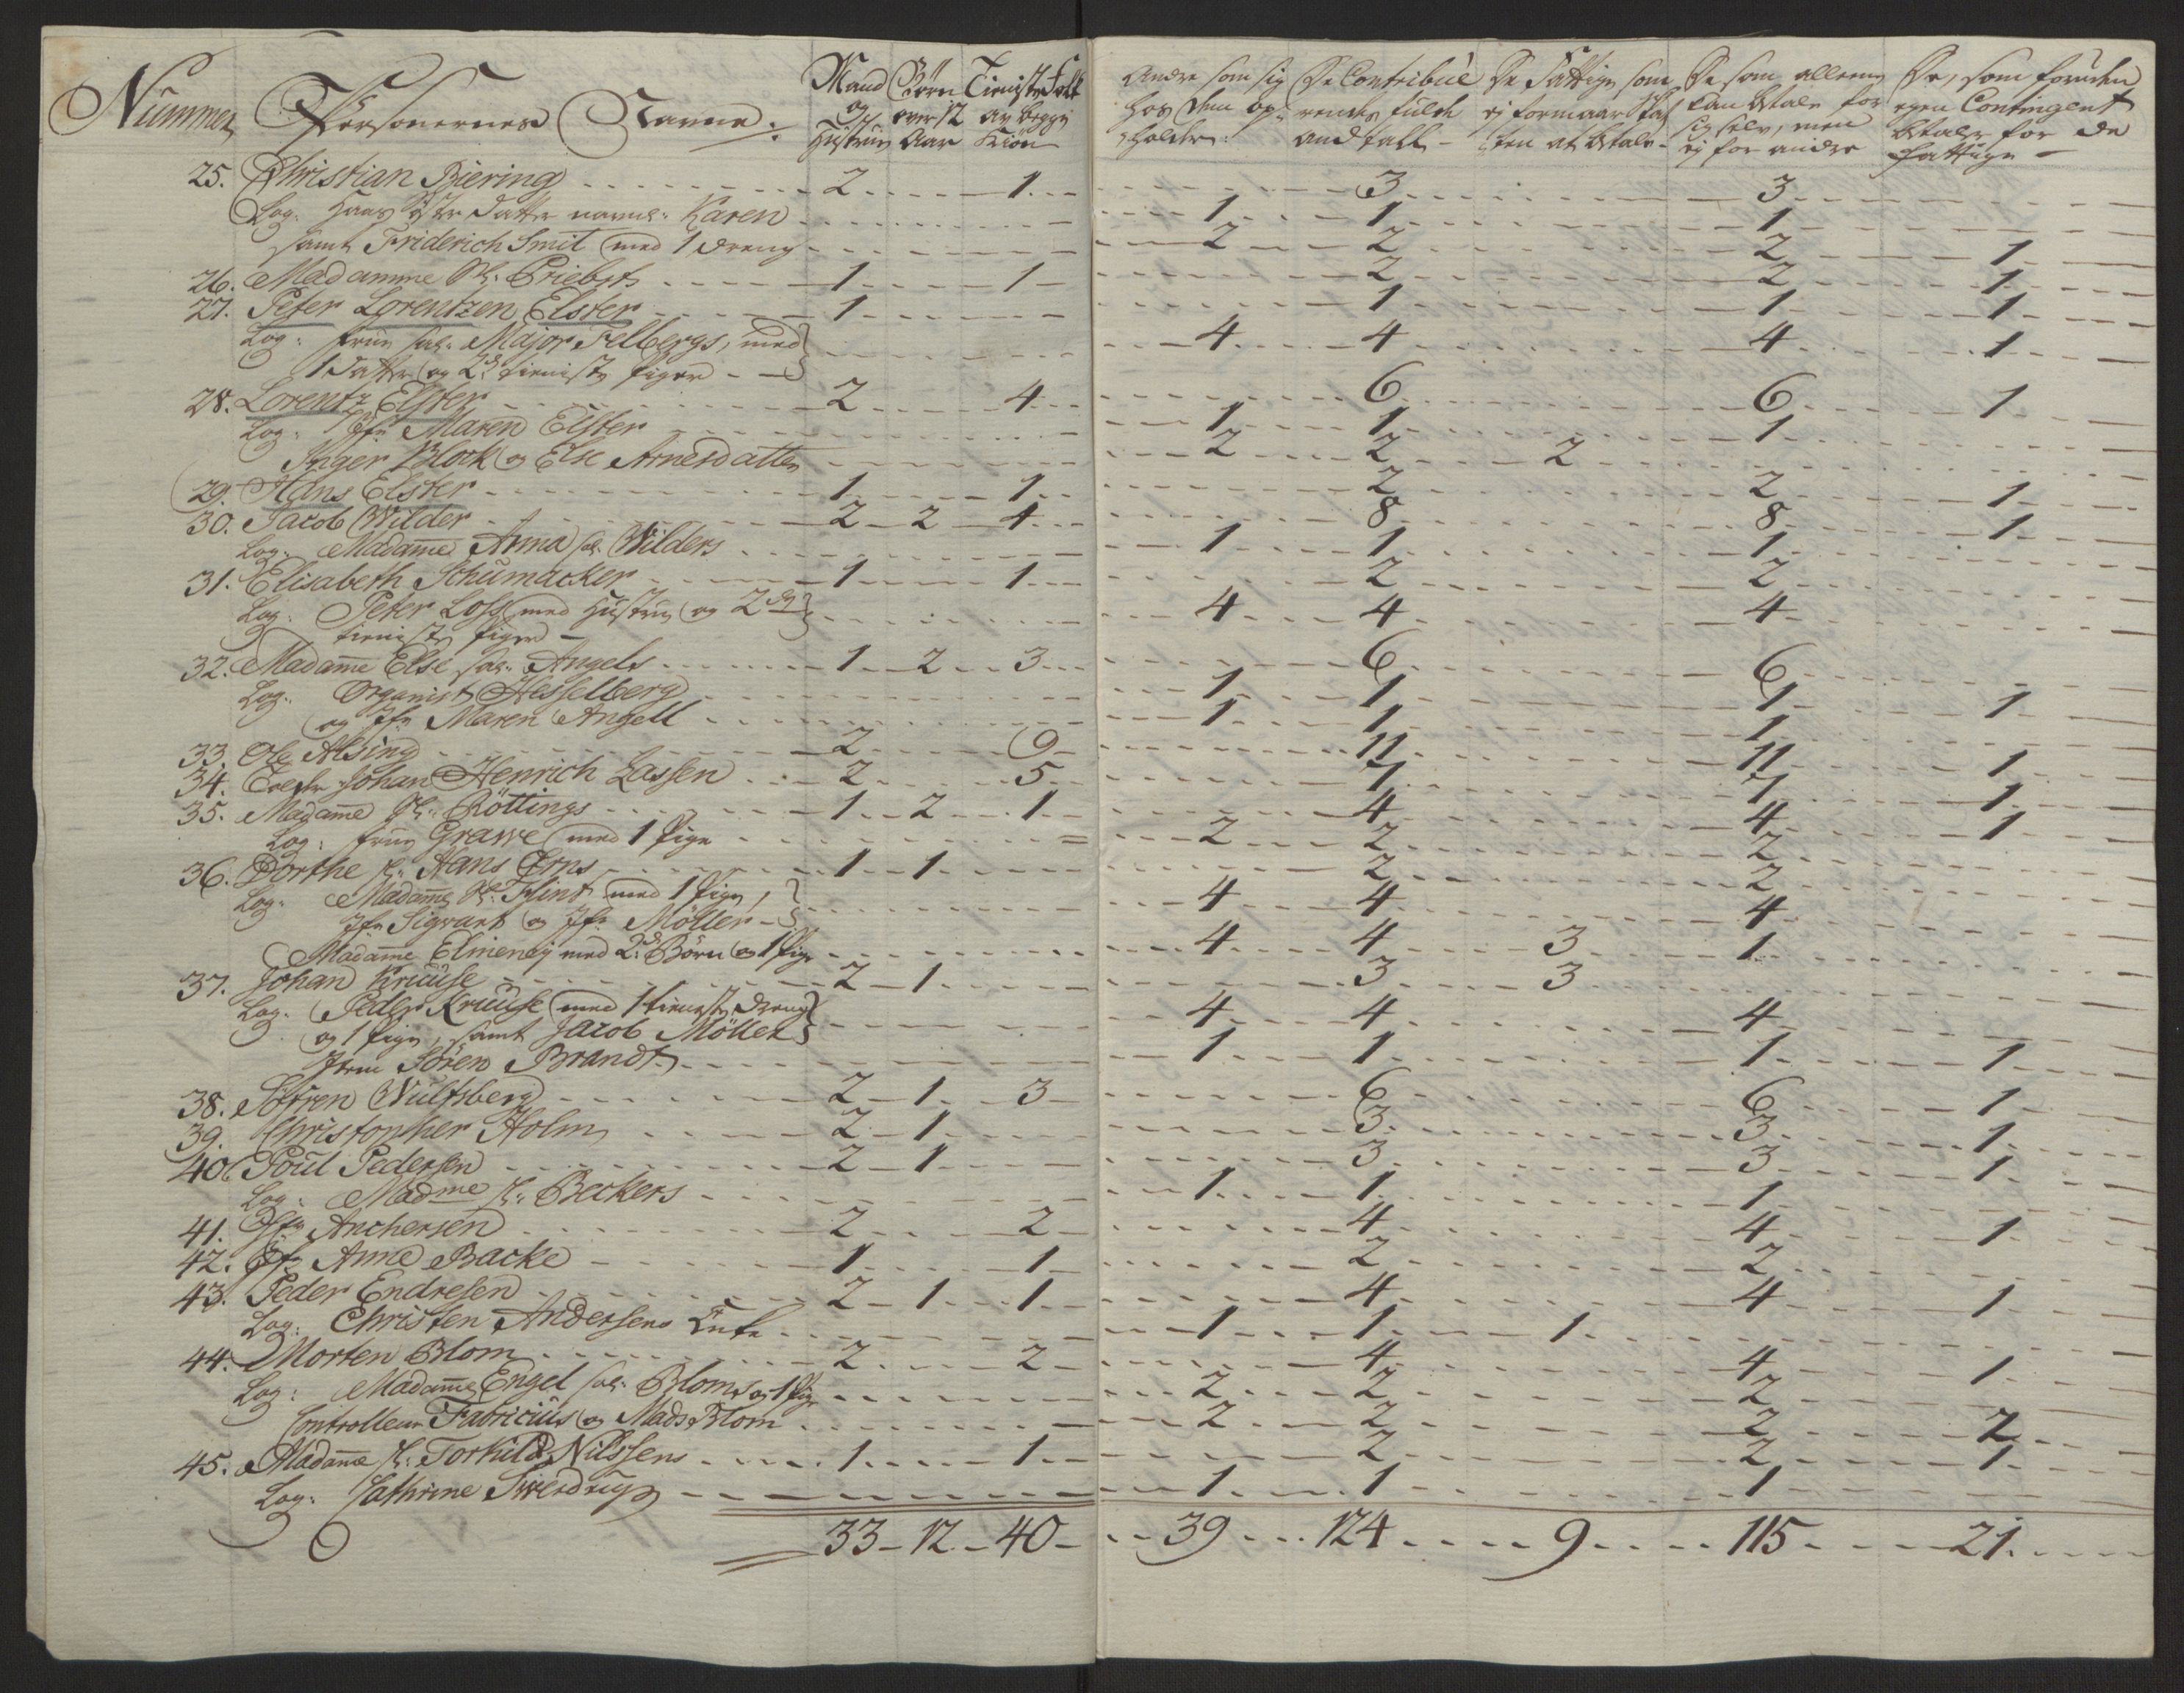 Nummer Persornernes Navne: Mand og Hustrue Börn over 12 Aar Tieniste Folk av begge Kiön Andre som sig hos dem op- holder: De Contribue- rendes fulde Andtall De Fattige som ej formaar Skat- ten at betale De som alleene kan betale for sig selv, men ej for andre De, som foruden egen Contingent betaler for de fattige
25. Christian Biering 2 1 3 3
Log: hans Söster datter navnl: Karen 1 1 1
samt Friderich Smit med 1 dreng 2 2 2 1
26. Madamme Sl: Priebsts 1 1 2 2 1
27. Peter Lorentzen Elster 1 1 1 1
Log: frue sal: Major Felbergs, med 4 4 4 1
1 datter og 2de tieniste piger
28. Lorentz Elster 2 4 6 6 1
Log: Jfr Maren Elster 1 1 1
Inger Block og Else Arnesdatter 2 2 2
29. Hans Elster 1 1 2 2 1
30. Jacob Wilder 2 2 4 8 8 1
Log: Madame Anna sl: Wilders 1 1 1
31. Elisabeth Schumacker 1 1 2 2
Log: Peter Loss med Hustrue og 2de 4 4 4
tieniste piger
32. Madame Else sal: Angels 1 2 3 6 6
Log: Organist Hesselberg 1 1 1 1
og Jfr Maren Angell 1 1 1
33. Ole Alsing 2 9 11 11 1
34. Johan Henrich Lassen 2 5 7 7 1
35. Madame Sl: Böttings 1 2 1 4 4 1
Log: frue Grawe med 1 Pige 2 2 2
36. Dorthe Sl: Hans Erns 1 1 2 2
Log: Madame Sl: Flint med 1 Pige, 4 4 4
Jfr Sigvart og Jfr Möller
Madame Elmeney med 2de Börn og 1 Pige 4 4 3 1
37. Johan Kruuse 2 1 3 3
Log: Peder Kruuse med 1 tieneste dreng 4 4 4
og 1 Pige, samt Jacob Möller
Item Sören Brandt 1 1 1 1
38. Sörren Wulfsberg 2 1 3 6 6 1
39. Christopher Holm 2 1 3 3 1
40. Poul Pedersen 2 1 3 3 1
Log: Madme Sl: Beckers 1 1 1
41. Anchersen 2 2 4 4 1
42. Jfr Anne Backe 1 1 2 2
43. Peder Endresen 2 1 1 4 4 1
Log: Christen Andersens Enke 1 1 1
44. Morten Blom 2 2 4 4 1
Log: Madame Engel sal: Bloms og 1 Pige 2 2 2
Controlleur Fabricius og Mads Blom 2 2 2 2
45. Madame Sl: Torkild Nilssens 1 1 2 2 1
Log: Cathrine Swerdrup 1 1 1
33 12 40 39 124 9 115 21